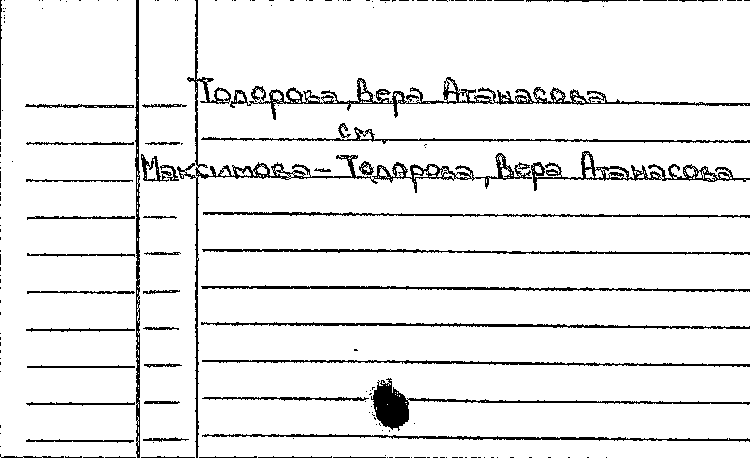 Тодорова, Вера Атанасова.
см.
Максимова – Тодорова, Вера Атанасова